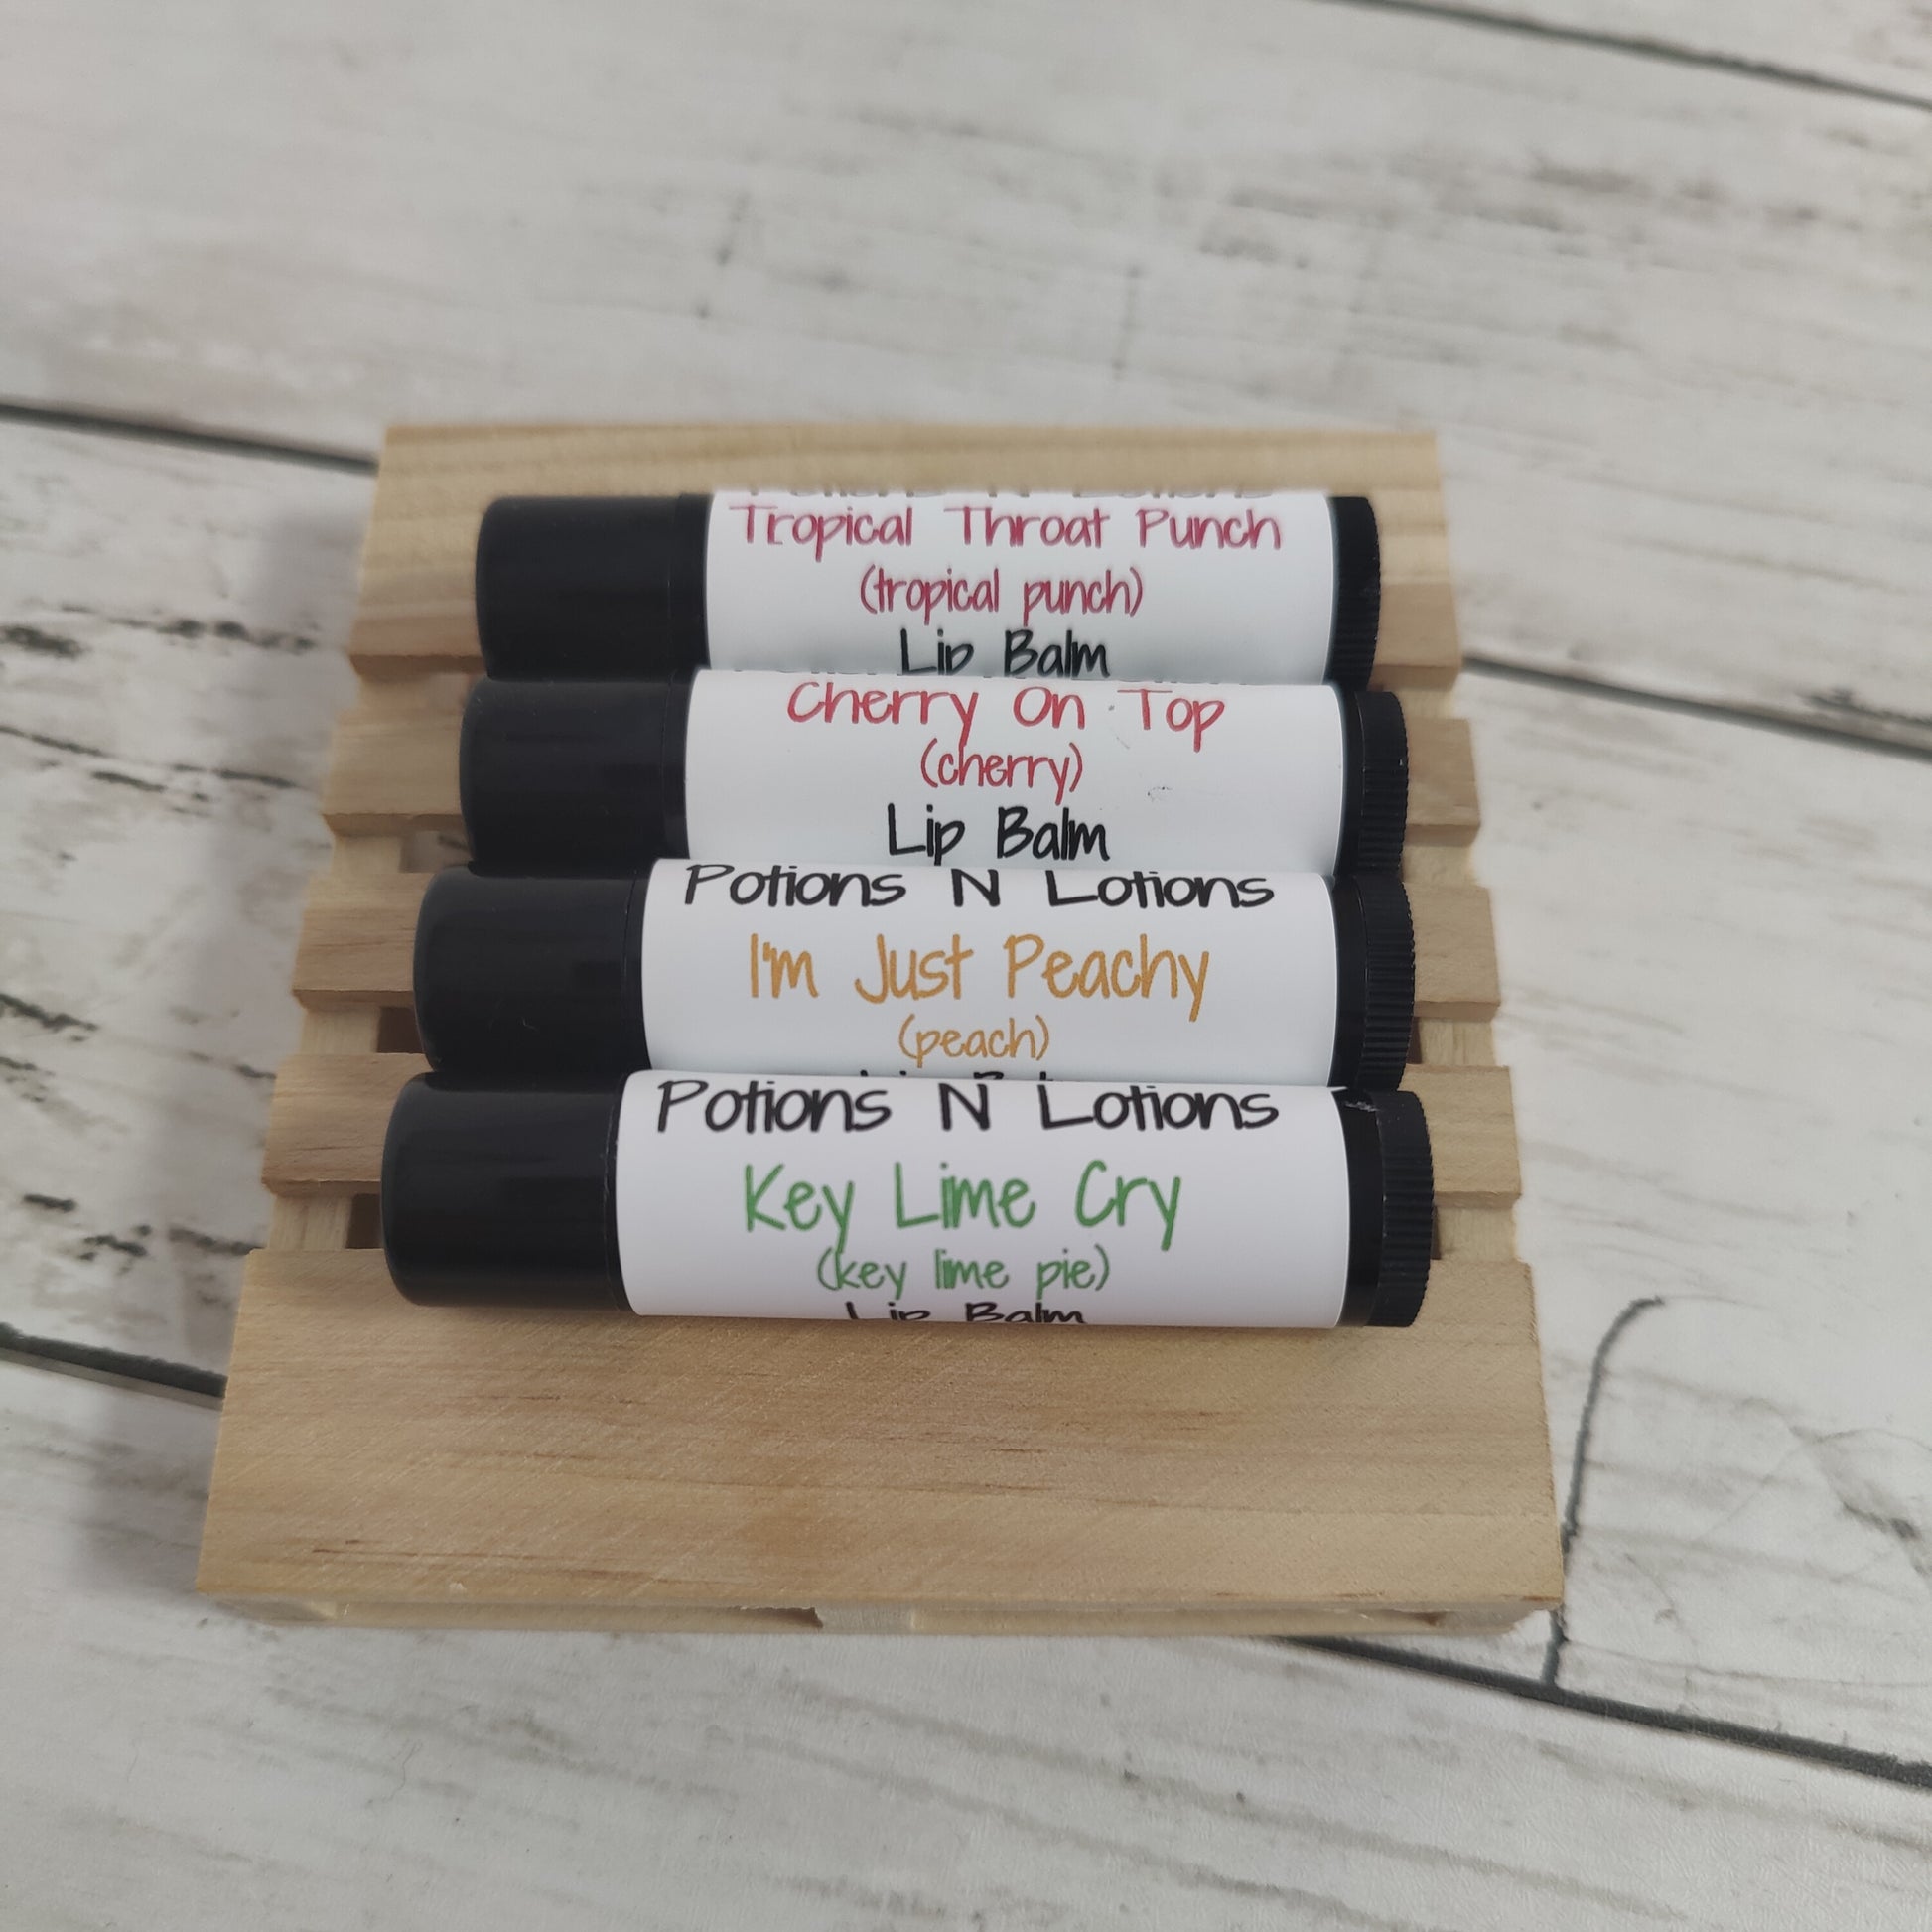 Tropical Throat Punch
(tropical punch)
Lip Balm
Cherry On Top
(cherry)
Lip Balm
Potions N Lotions
I'm Just Peachy
(peach)
Potions N Lotions
Key Lime Cry
(key lime pie)
Lip Balm